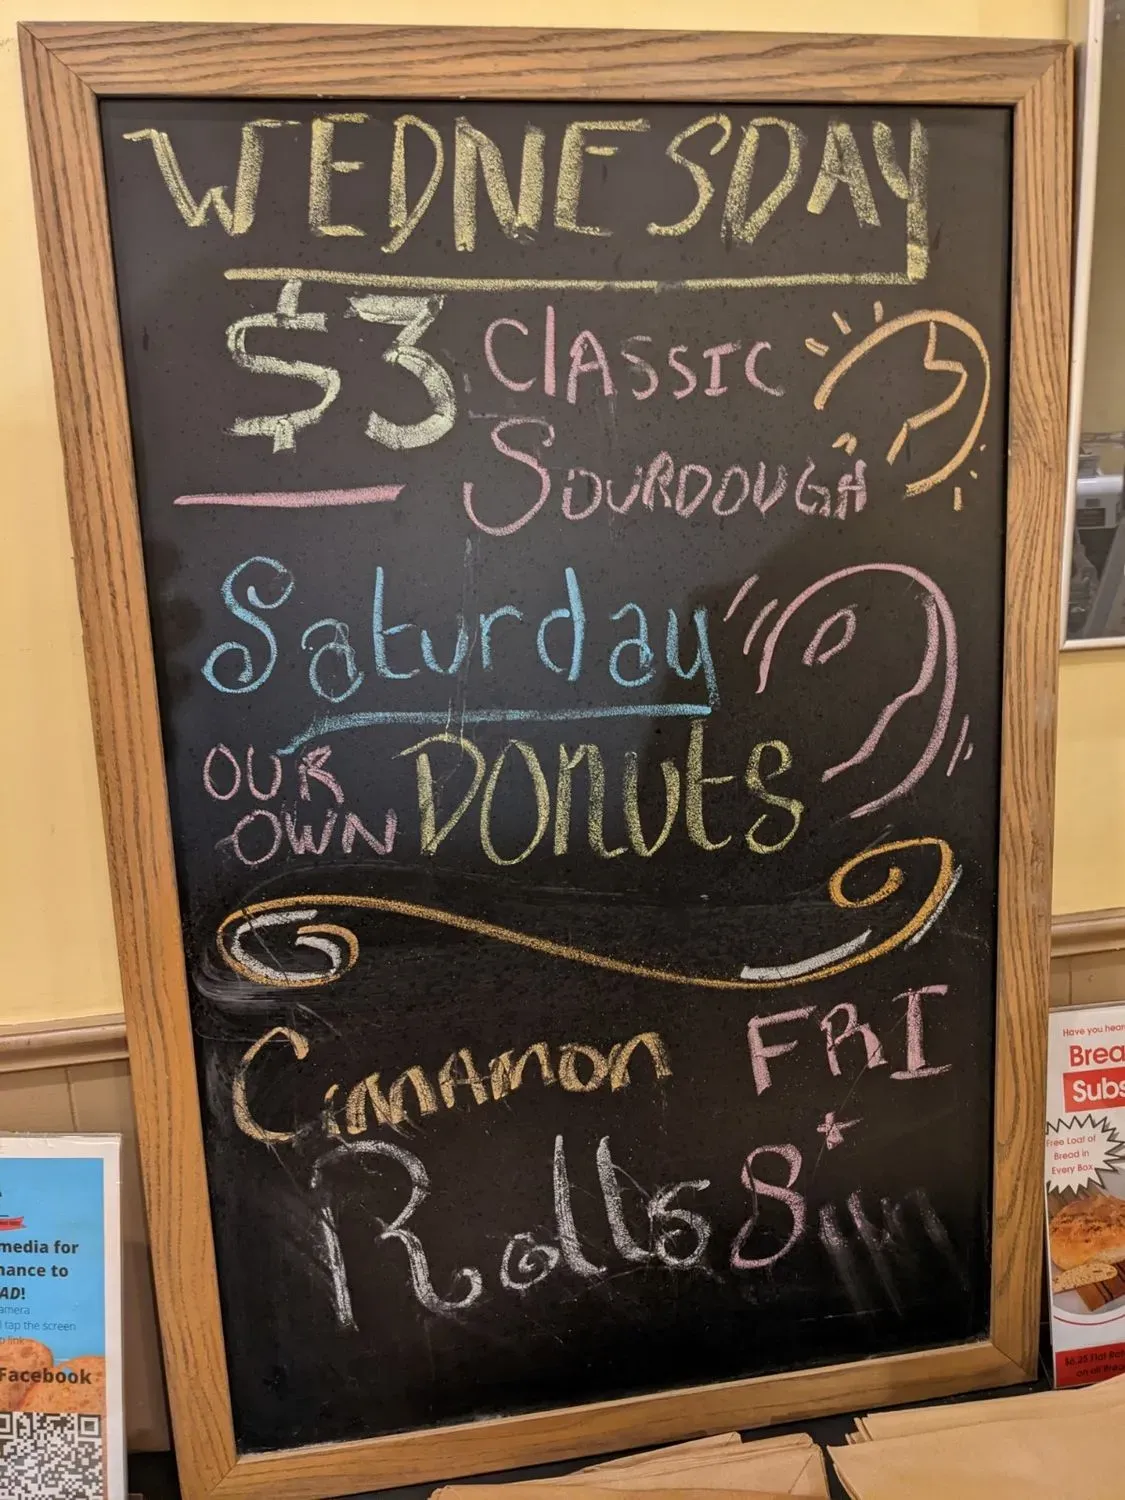 WEDNESDAY
$3 Classic
Sourdough
Saturday
OUR
OWN Donuts
Cinnamon FRI
Rolls & Sun
media for
hance to
AD!
amera
l tap the screen
p link
Facebook
Have you hear
Brea
Subs
Free Loaf of
Bread in
Every Box
$6.25 Flat Rat
on all Breg